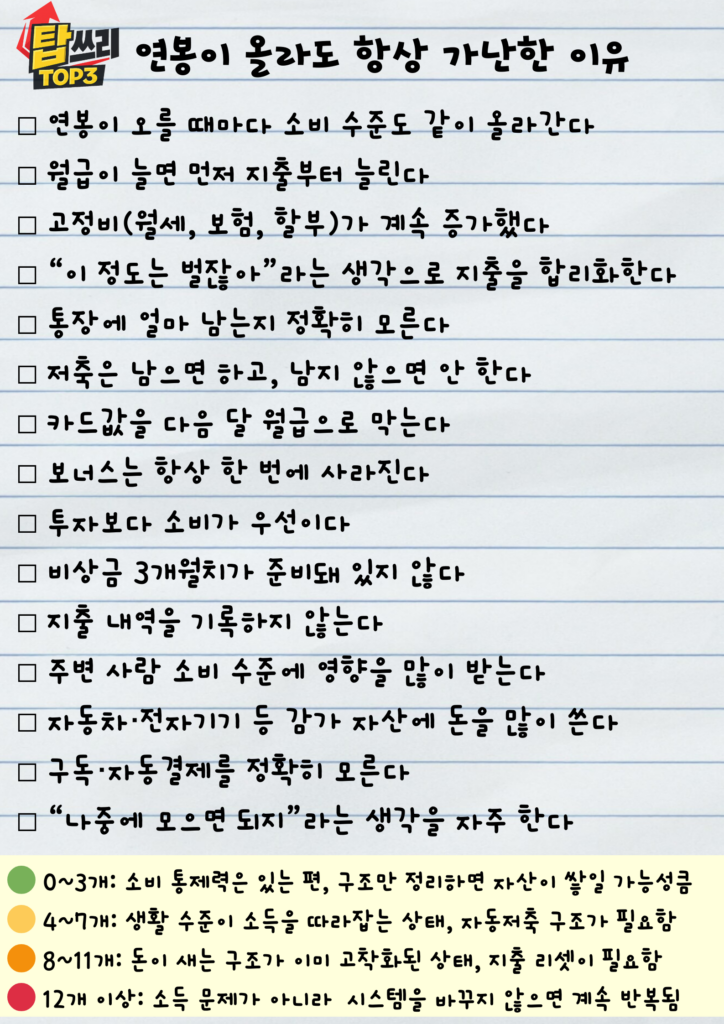 탑쓰리
TOP3
연봉이 올라도 항상 가난한 이유
□ 연봉이 오를 때마다 소비 수준도 같이 올라간다
□ 월급이 늘면 먼저 지출부터 늘린다
□ 고정비(월세, 보험, 할부)가 계속 증가했다
□ “이 정도는 벌잖아”라는 생각으로 지출을 합리화한다
□ 통장에 얼마 남는지 정확히 모른다
□ 저축은 남으면 하고, 남지 않으면 안 한다
□ 카드값을 다음 달 월급으로 막는다
□ 보너스는 항상 한 번에 사라진다
□ 투자보다 소비가 우선이다
□ 비상금 3개월치가 준비돼 있지 않다
□ 지출 내역을 기록하지 않는다
□ 주변 사람 소비 수준에 영향을 많이 받는다
□ 자동차·전자기기 등 감가 자산에 돈을 많이 쓴다
□ 구독·자동결제를 정확히 모른다
□ “나중에 모으면 되지”라는 생각을 자주 한다
0~3개: 소비 통제력은 있는 편, 구조만 정리하면 자산이 쌓일 가능성큼
4~7개: 생활 수준이 소득을 따라잡는 상태, 자동저축 구조가 필요함
8~11개: 돈이 새는 구조가 이미 고착화된 상태, 지출 리셋이 필요함
12개 이상: 소득 문제가 아니라 시스템을 바꾸지 않으면 계속 반복됨